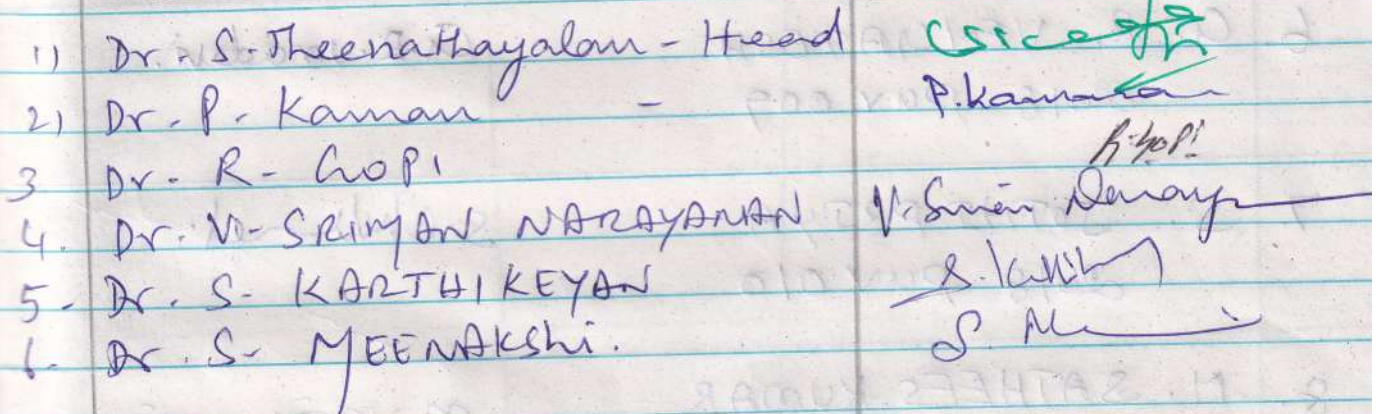 1) Dr. S. Theenathayalan - Head
2) Dr. P. Kannan - P. Kannan
R. Gopi
3 Dr. R. Gopi
4. Dr. V. SRIMAN NARAYANAN V. Sriman Naray
5. Dr. S. KARTHIKEYAN S. Karthik
6. Dr. S. MEENAKShi. S. M